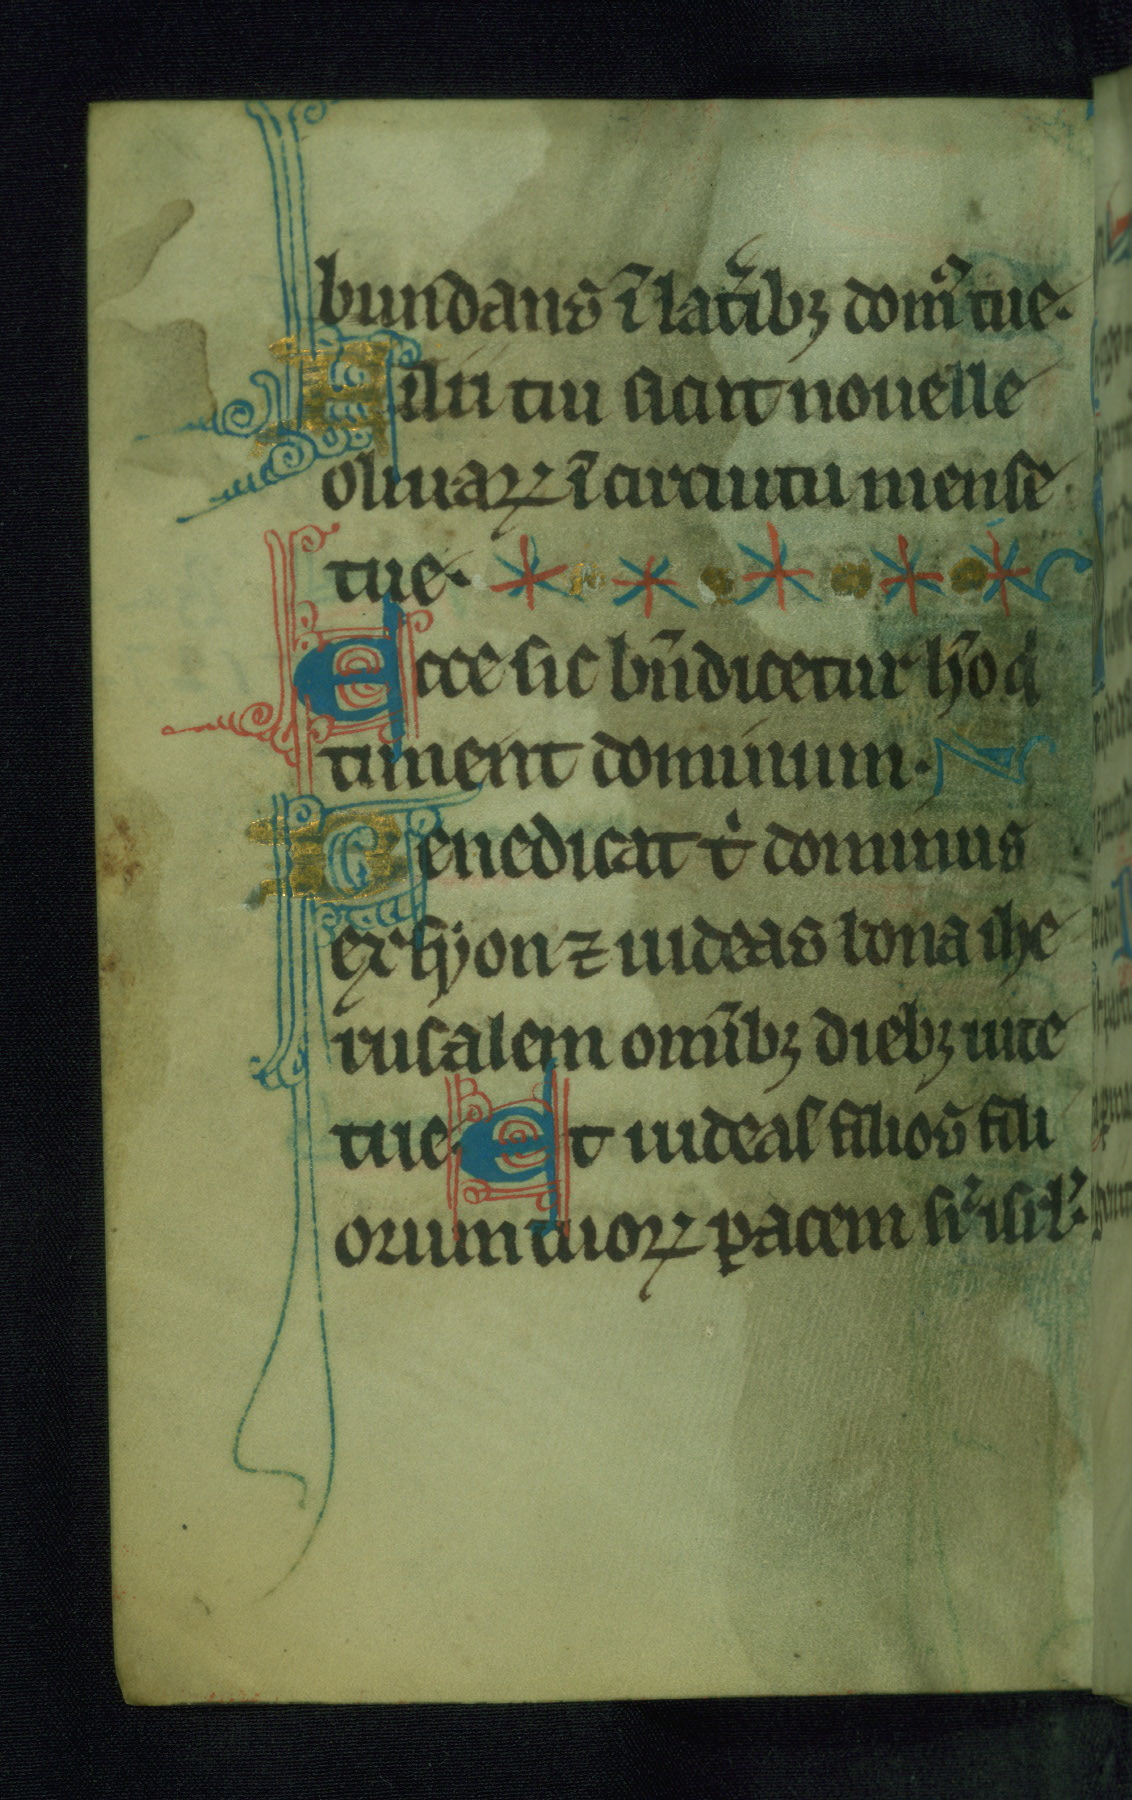 bundans ĩ lat̃ibꝫ dom̃ tue.
Filii tui sicut nouelle
oliuaꝝ ĩ circuitu mense
tue.
Ecce sic bñdicetur hõ q̇
timent dominum.
Benedicat t̾ dominus
ex syon ⁊ uideas bona ihe
rusalem omĩbꝫ diebꝫ uite
tue. Et uideas filios fili
orum tuoꝝ pacem suꝑ isrl̾.